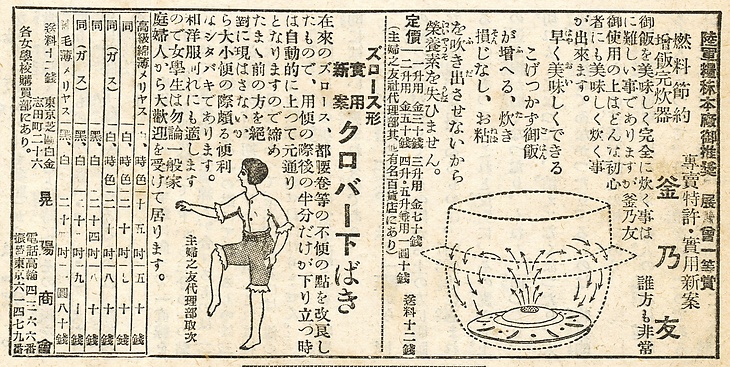 陸軍糧秣本廠御推奬 展覽會一等賞
燃料節約
増飯完炊器
專賣特許・實用新案
釜乃友
御飯を美味しく完全に炊く事は
に難しい事でありますが釜乃友
御使用の上はどんな初心
者にも美味しく炊く事
が出來ます。
誰方も非常
早く美味しくできる
こげつかず御飯
が増へる、炊き
損じなし、お粘
を吹き出させないから
榮養素を失ひません。
定價
一升用 金五十錢
二升用 金三十錢
三升用 金七十錢
四升・五升兼用 一圓十錢
送料十二錢
(主婦之友社代理部其他有名百貨店にあり)
ズロース形
實用
新案
クロバー下ばき
在來のズロース、都腰卷等の不便の點を改良し
たもので、用便の際後の半分だけが下り立つ時
は自動的に上つて元通り
となりますので諦め
たまゝ前の方を絶
對に現はさないか
ら大小便の際頗る便利
なシタバキであります。
和洋服何れにも適します
ので女學生は勿論一般家
庭婦人から大歡迎を受けて居ります。
主婦之友代理部取次
高級綿薄メリヤス
同(ガス)
同
同(ガス)
同
純毛薄メリヤス
送料十二錢
各女學校購買部にあり。
東京芝區白金
志田町二十六
晃陽商會
電話高輪四三六六番
振替東京六一四七九番